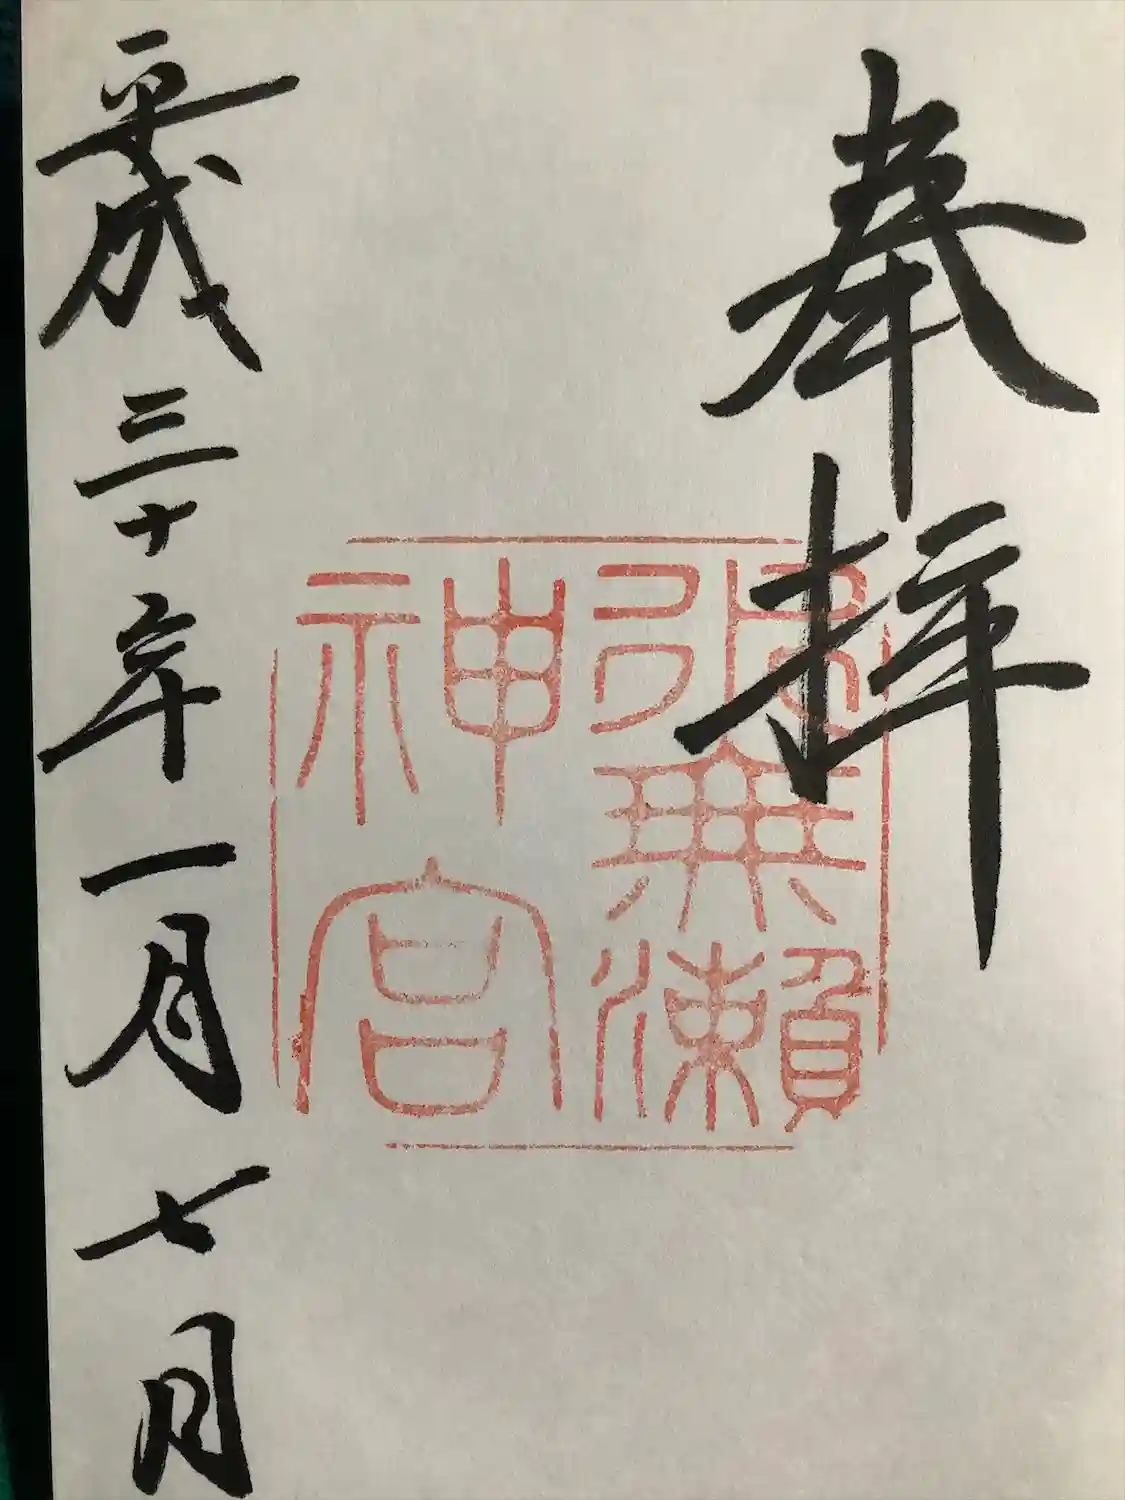 奉拝
水無瀬
神宮
平成三十年一月七日